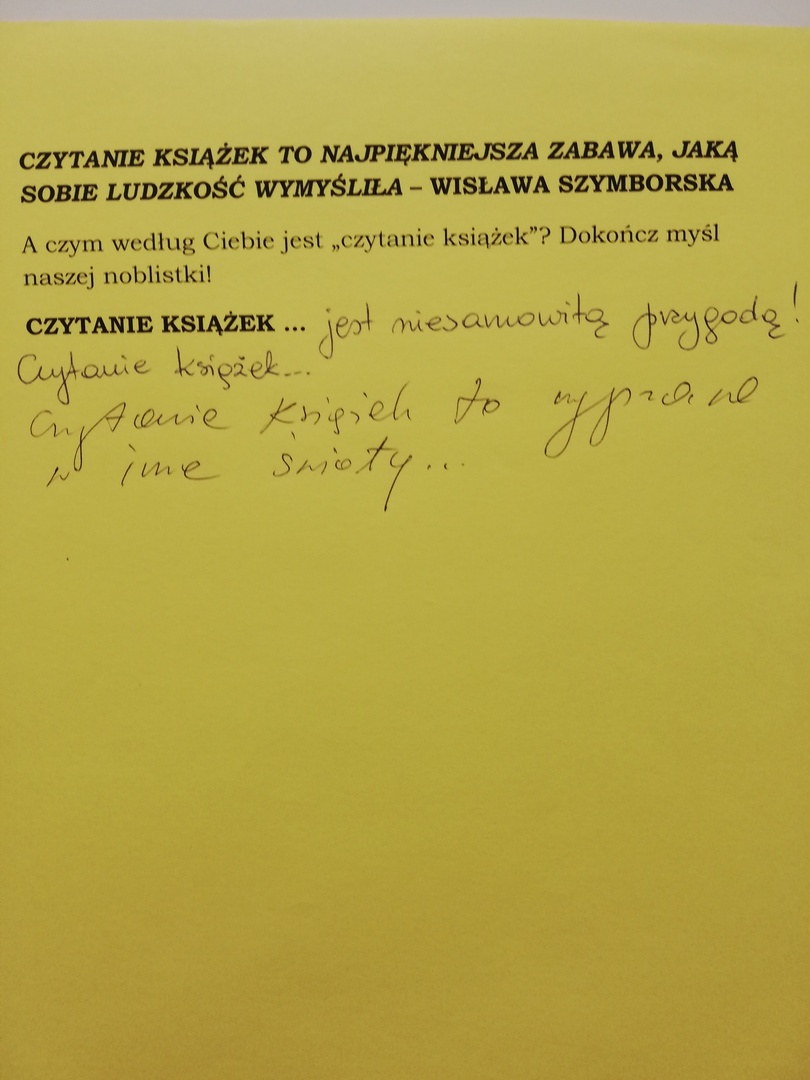 CZYTANIE KSIĄŻEK TO NAJPIĘKNIEJSZA ZABAWA, JAKĄ
SOBIE LUDZKOŚĆ WYMYŚLIŁA – WISŁAWA SZYMBORSKA
A czym według Ciebie jest „czytanie książek”? Dokończ myśl
naszej noblistki!
CZYTANIE KSIĄŻEK ... jest niesamowitą przygodą!
Czytanie książek...
Czytanie książek to wyprawa
w inne światy...